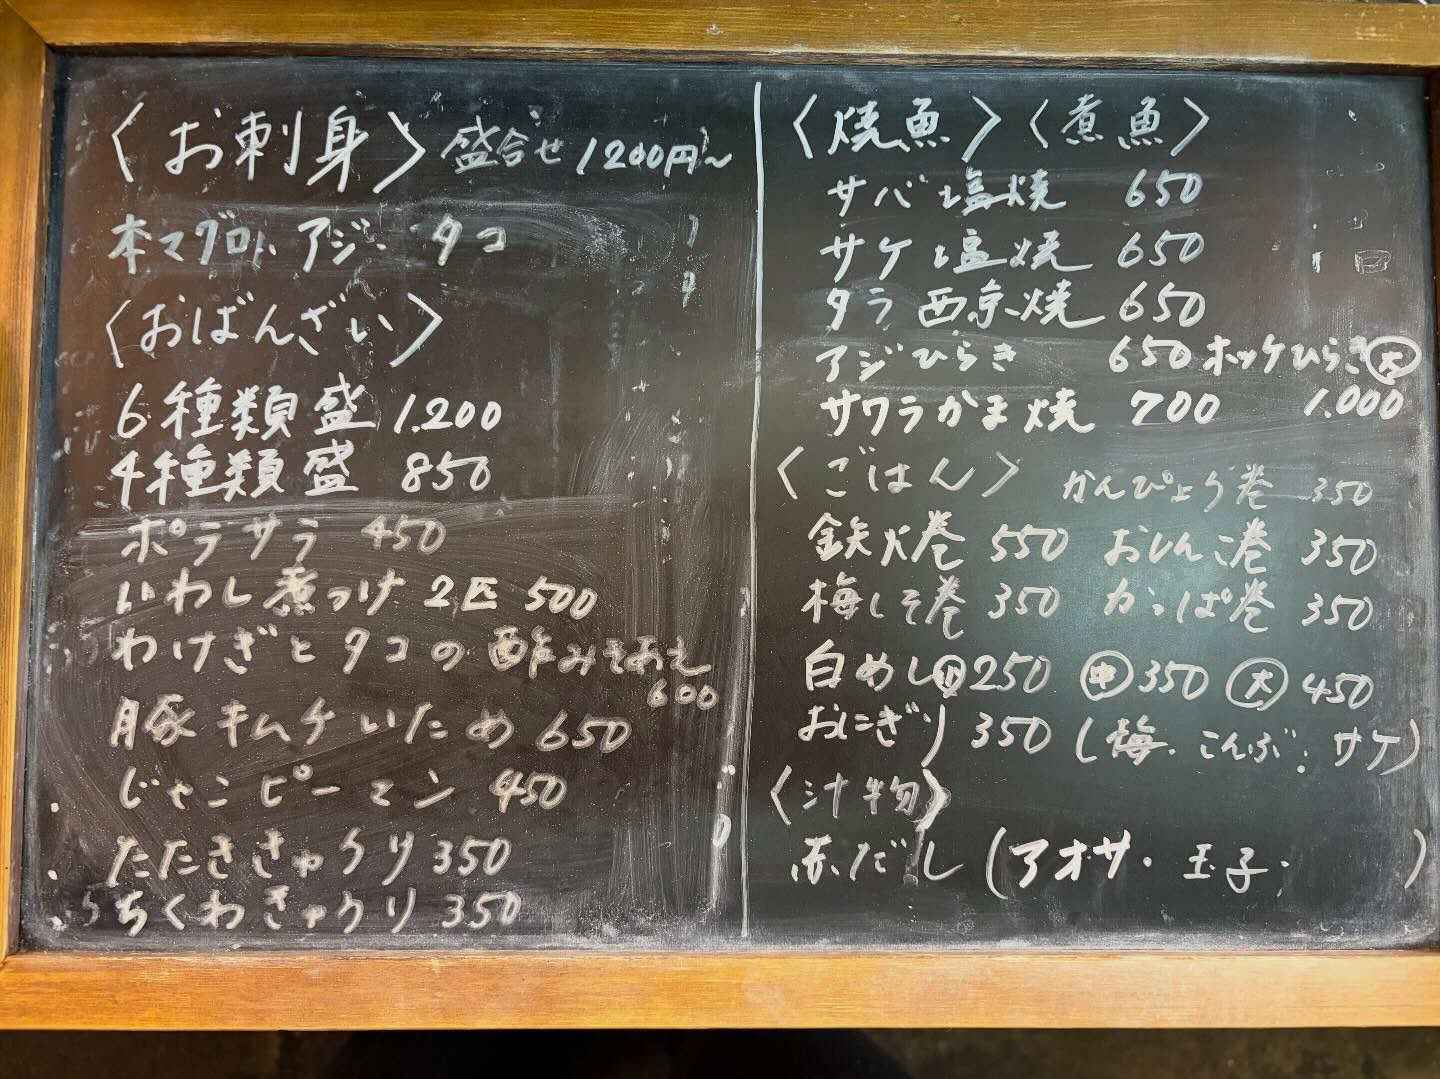 〈お刺身〉盛合せ 1200円〜
本マグロ、アジ、タコ
〈おばんざい〉
6種類盛 1.200
4種類盛 850
ポテサラ 450
いわし煮つけ 2匹 500
わけぎとタコの酢みそあえ
600
豚キムチいため 650
じゃこピーマン 450
たたききゅうり 350
ちくわきゅうり 350
〈焼魚〉〈煮魚〉
サバ塩焼 650
サケ塩焼 650
タラ西京焼 650
アジひらき 650 ホッケひらき 大
サワラかま焼 700 1.000
〈ごはん〉 かんぴょう巻 350
鉄火巻 550 おしんこ巻 350
梅しそ巻 350 かっぱ巻 350
白めし 小 250 中 350 大 450
おにぎり 350 (梅・こんぶ・サケ)
〈汁物〉
赤だし (アオサ・玉子・ )